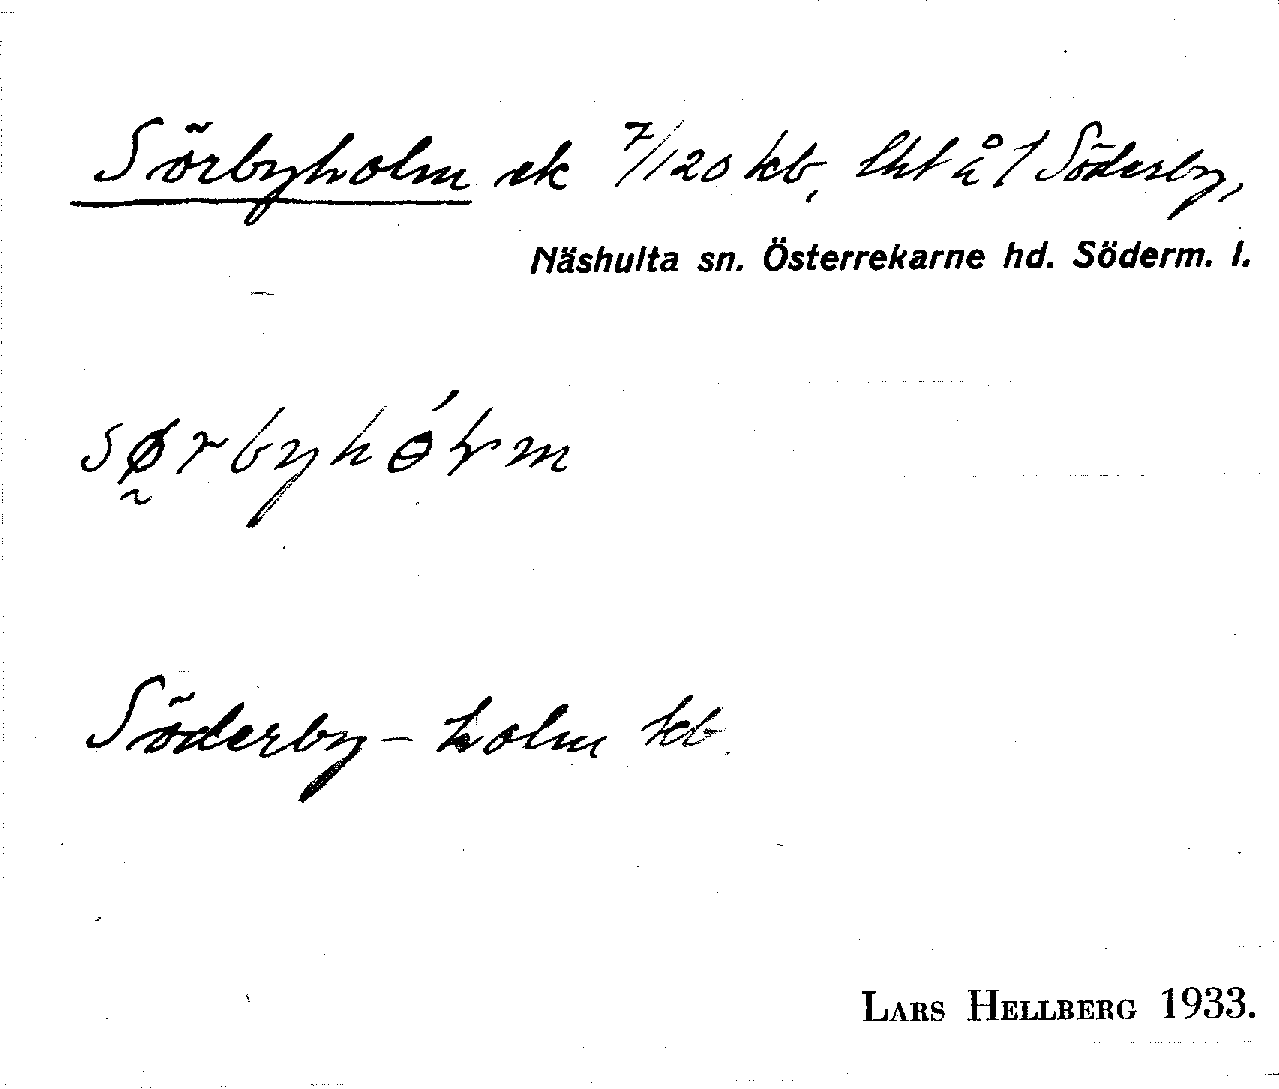 Sörbyholm ek 7/120 kb, lht å 1 Söderby,
Näshulta sn. Österrekarne hd. Söderm. l.
Söderby - holm kb.
LARS HELLBERG 1933.